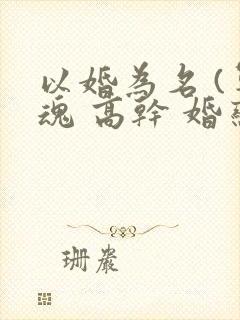 以婚為名(
魂 高幹 婚
珊嚴